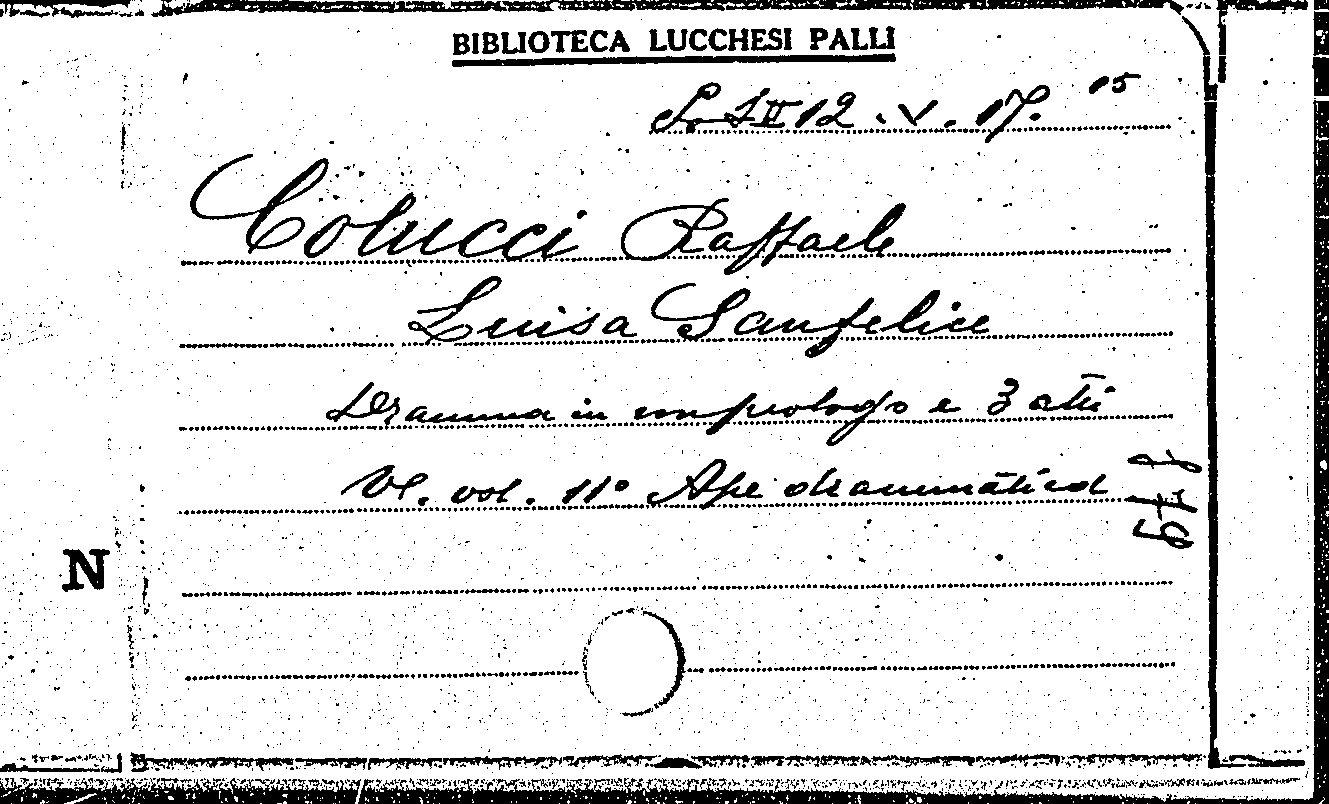 BIBLIOTECA LUCCHESI PALLI
12 . V . 17. 15
Colucci Raffaele
Luisa Sanfelice
Dramma in un prologo e 3 atti
vol. 11º Ape drammatica
N